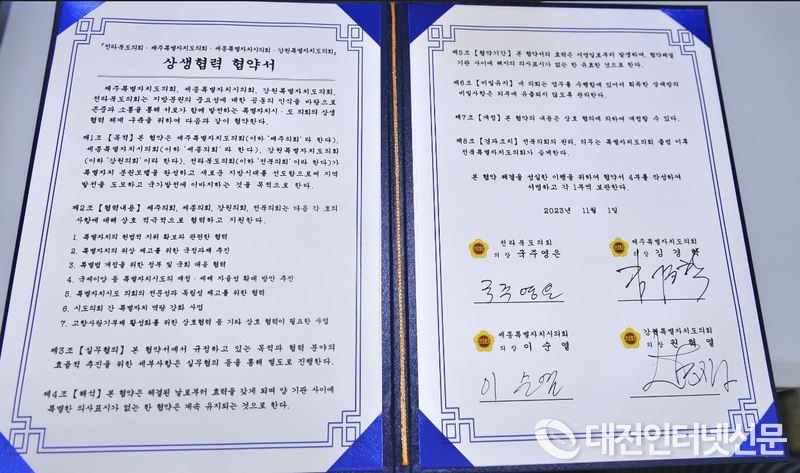 「전라북도의회 · 제주특별자치도의회 · 세종특별자치시의회 · 강원특별자치도의회」
상생협력 협약서
제주특별자치도의회, 세종특별자치시의회, 강원특별자치도의회,
전라북도의회는 지방분권의 중요성에 대한 공동의 인식을 바탕으로
존중과 소통을 통해 서로가 함께 발전하는 특별자치시 · 도 의회의 상생
협력 체계 구축을 위하여 다음과 같이 협약한다.
제1조 【목적】 본 협약은 제주특별자치도의회(이하 '제주의회' 라 한다),
세종특별자치시의회(이하 '세종의회' 라 한다), 강원특별자치도의회
(이하 '강원의회' 이라 한다), 전라북도의회(이하 '전북의회' 이라 한다)가
특별자치 분권모델을 완성하고 새로운 지방시대를 선도함으로써 지역
발전을 도모하고 국가발전에 이바지하는 것을 목적으로 한다.
제2조 【협력내용】 제주의회, 세종의회, 강원의회, 전북의회는 다음 각 호의
사항에 대해 상호 적극적으로 협력하고 지원한다.
1. 특별자치의 헌법적 지위 확보와 관련한 협력
2. 특별자치의 위상 제고를 위한 국정과제 추진
3. 특별법 개정을 위한 정부 및 국회 대응 협력
4. 국세이양 등 특별자치시도의 재정 · 세제 자율성 확대 방안 추진
5. 특별자치시도 의회의 전문성과 독립성 제고를 위한 협력
6. 시도의회 간 특별자치 역량 강화 사업
7. 고향사랑기부제 활성화를 위한 상호협력 등 기타 상호 협력이 필요한 사업
제3조 【실무협의】 본 협약서에서 규정하고 있는 목적과 협력 분야의
효율적 추진을 위한 세부사항은 실무협의 등을 통해 별도로 진행한다.
제4조 【해석】 본 협약은 체결된 날로부터 효력을 갖게 되며 양 기관 사이에
특별한 의사표시가 없는 한 협약은 계속 유지되는 것으로 한다.
제5조 【협약기간】 본 협약서의 효력은 서명일로부터 발생하며, 협약체결
기관 사이에 해지의 의사표시가 없는 한 유효한 것으로 한다.
제6조 【비밀유지】 네 의회는 업무를 수행함에 있어서 취득한 상대방의
비밀사항은 외부에 유출되지 않도록 관리한다.
제7조 【개정】 본 협약의 내용은 상호 협의에 의하여 개정할 수 있다.
제8조 【경과조치】 전북의회의 권리, 의무는 특별자치도의회 출범 이후
전북특별자치도의회가 승계한다.
본 협약 체결을 성실한 이행을 위하여 협약서 4부를 작성하여
서명하고 각 1부씩 보관한다.
2023년 11월 1일
전라북도의회
의장 국주영은
국주영은
제주특별자치도의회
의장 김경학
김경학
세종특별자치시의회
의장 이순열
이순열
강원특별자치도의회
의장 권혁열
대전인터넷신문